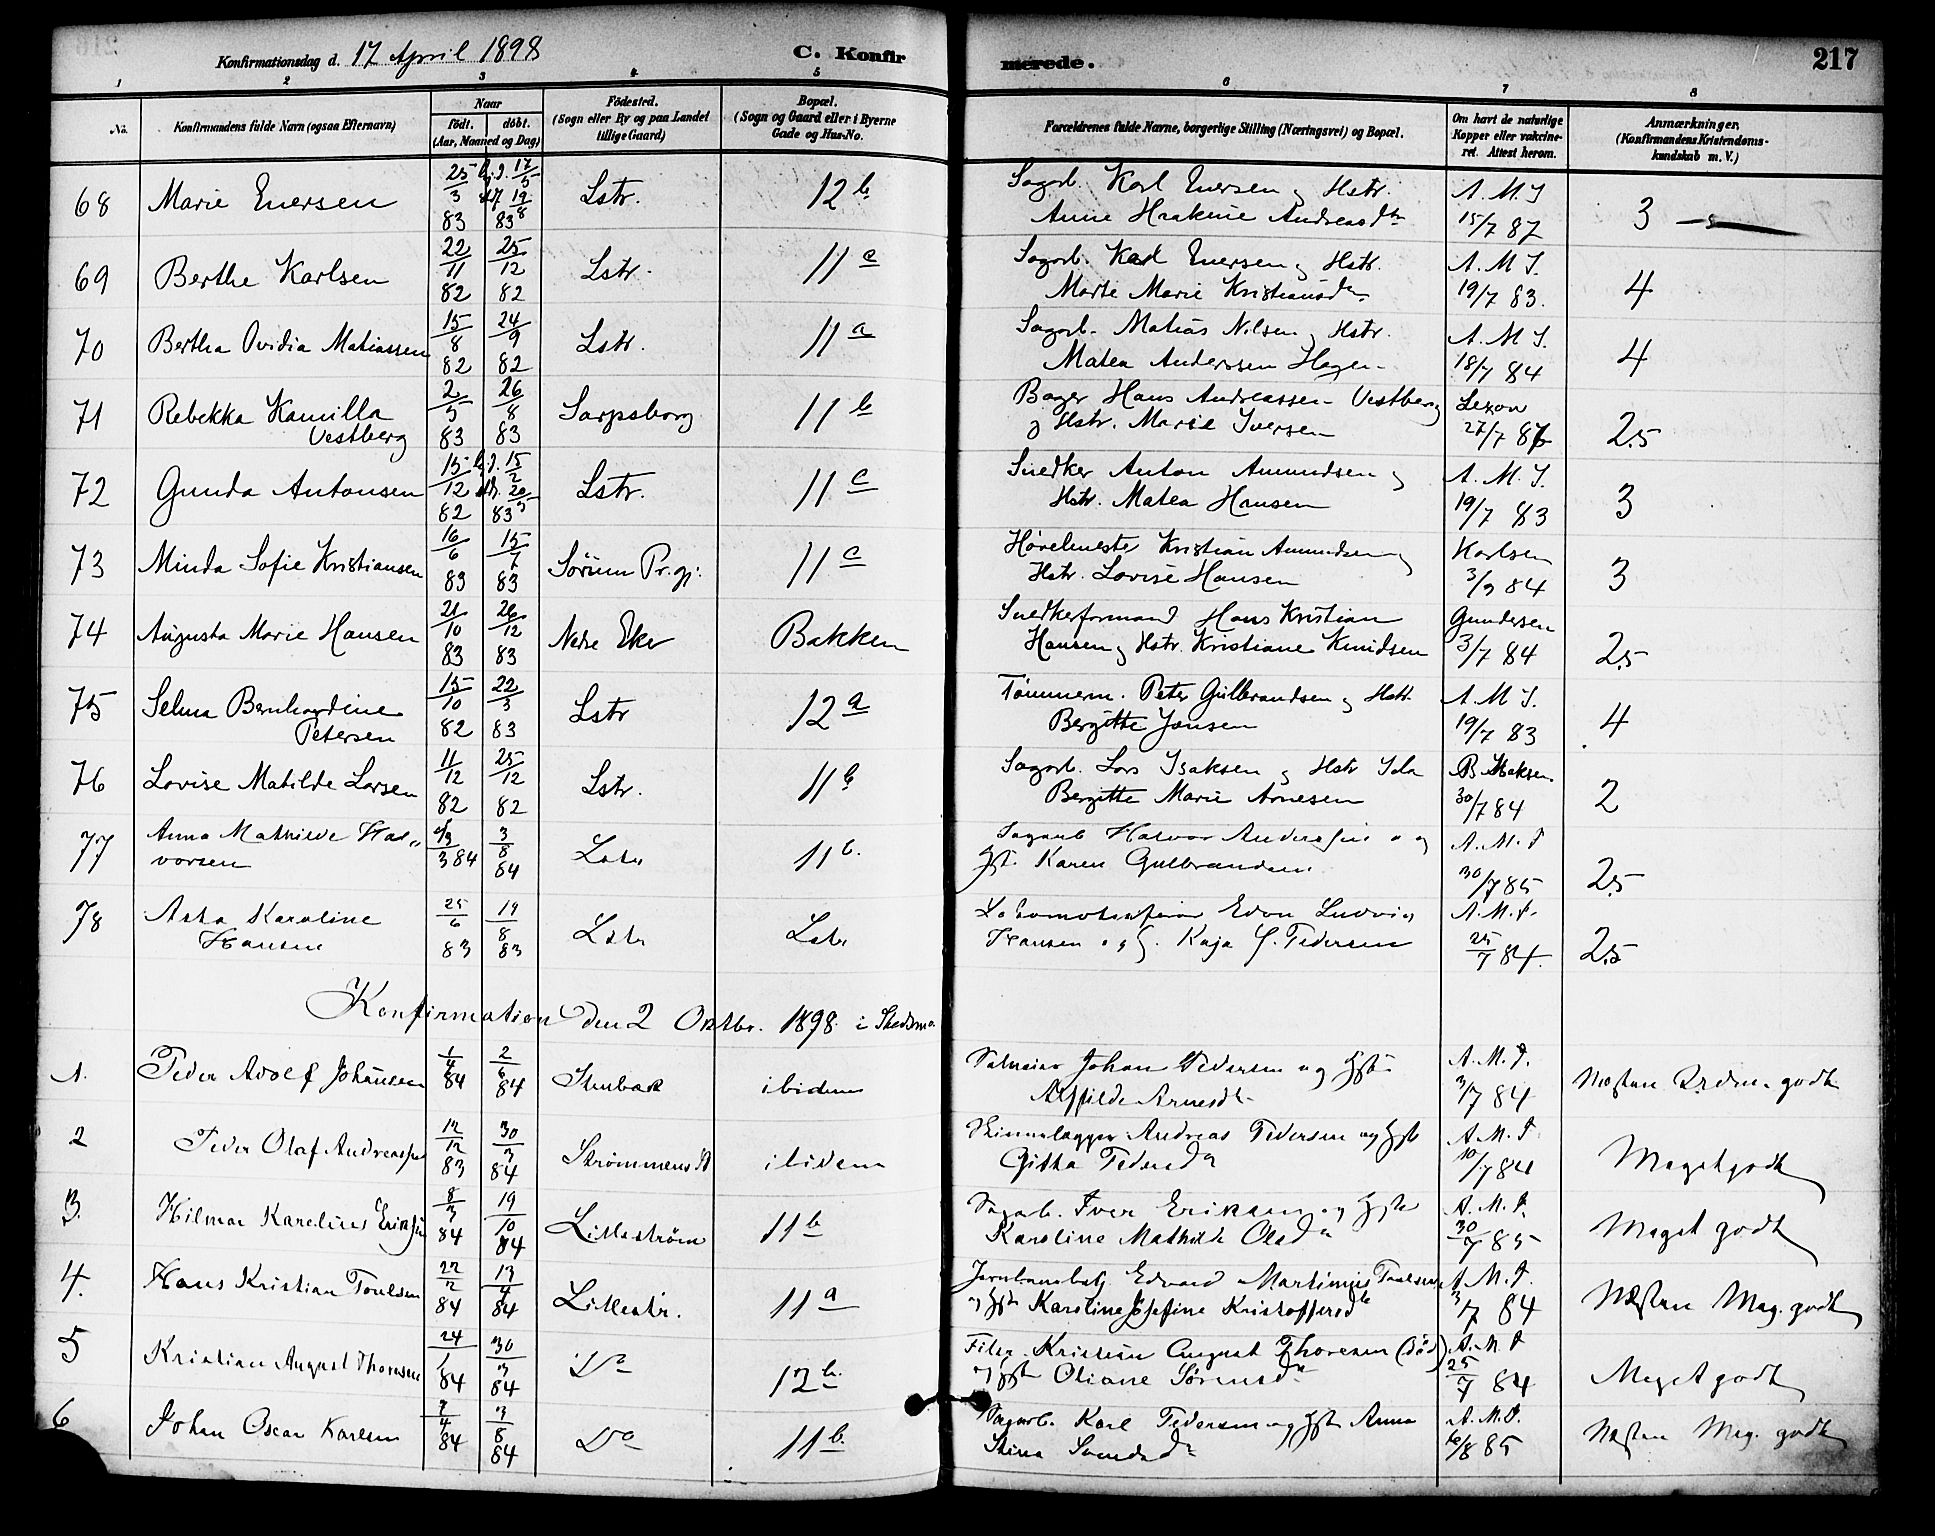 Konfirmationsdag d. 17 April 1898
C. Konfirmerede.
217
1 2 3 4 5 6 7 8
No.
Konfirmandens fulde Navn (ogsaa Efternavn)
Naar
født. døbt.
(Aar, Maaned og Dag)
Fødested.
(Sogn eller By og paa Landet
tillige Gaard)
Bopæl.
(Sogn og Gaard eller i Byerne
Gade og Hus-No.
Forældrenes fulde Navne, borgerlige Stilling (Næringsvei) og Bopæl.
Om havt de naturlige
Kopper eller vakcine-
ret. Attest herom.
Anmærkninger,
(Konfirmandens Kristendoms-
kundskab m. V.)
68 Marie Enersen 25/3 83 19/8 83 Lstr. 12 b Sagarb. Karl Enersen og Hstr. A. M. J
Anne Haakine Andreasdtr 15/7 87 3
69 Berthe Karlsen 22/11 82 25/12 82 Lstr. 11 c Sagarb. Karl Enersen og Hstr. A. M J.
Marte Marie Kristiansdr. 19/7 83. 4
70 Bertha Ovidia Matiassen 15/8 82 24/9 82 Lstr. 11 a Sagarb. Matias Nilsen og Hstr. A. M J.
Matea Anderssen Hagen 18/7 84 4
71 Rebekka Kamilla 2/5 83 26/8 83 Sarpsborg 11 b Bager Hans Andreassen Vestberg Lexow
Vestberg og Hstr. Marie Iversen 27/7 2.5
72 Gunda Antonsen 15/12 82 Lstr. 11 c Snedker Anton Amundsen og A. M. J.
Hstr. Matea Hansen 19/7 83 3
73 Minda Sofie Kristiansen 16/6 83 15/7 83 Sørum Pr.gj. 11 c Høvelmester Kristian Amundsen og Karlsen
Hstr. Lovise Hansen 3/9 84 3
74 Augusta Marie Hansen 21/10 83 26/12 83 Nedre Eker Bakken Snedkerformand Hans Kristian Gundersen
Hansen og Hstr. Kristiane Knudsen 3/7 84 2.5
75 Selma Bernhardine 15/10 82 22/3 83 Lstr 12 a Tømmerm. Peter Gulbrandsen og Hstr. A. M J.
Petersen Bergitte Jansen 19/7 83 4
76 Lovise Matilde Larsen 11/12 82 25/12 82 Lstr. 11 b Sagarb. Lars Isaksen og Hstr Ida
Bergitte Marie Arnesen 30/7 84 2
77 Anna Mathilde Hal- 3 84 3/8 84 Lstr 11 b. Sagarb Halvor Anderssen og A. M. J
vorsen Hst. Karen Gulbrandsen 30/7 85 2.5
78 Asta Karoline 25/6 83 19/8 83 Lstr Lstr Ludvig A. M. J.
Hansen Hansen og H. Kaja J. Pedersen 25/7 84. 2.5
Konfirmation den 2 Oktbr. 1898 i Skedsmo
1. Peder Adolf Johansen 1/4 84 2/6 84 Stenbak ibidem Johan Pedersen og Hst. A. M. J.
Arnesdr 3/7 84 Næsten godt
2 Peder Olaf Andreassen 12/12 83 30/3 84 Strømmens St ibidem Skinnelægger Andreas Pedersen og Hst A. M. J
Githa Pedersdr 10/7 84 Meget godt
3. Hilmar Karelius Eriksen 8/3 84 19/10 84 Lillestrøm 11 b Sagarb. Iver Eriksen og Hst A. M. J.
Karoline Mathilde Olsdr 30/7 85 Meget godt
4. Hans Kristian Poulsen 22/2 84 13/4 84 Lillestr. 11 a Edvard Martinius Poulsen A. M. J.
og Hst Karoline Josefine Kristoffersdtr 3/7 84 Næsten Meg. godt
5 Kristian August Thoresen 24/1 84 30/3 84 Do 12 b. Filer Kristian August Thoresen (død) A. M. J
og Hst Oliane Sørensdr 25/7 84 Meget godt
6 Johan Oscar Karlsen 84 3/8 84 Do 11 b. Sagarb. Karl Pedersen og Hst Anna A. M. J.
Stina Svendsdr 6/8 85 Næsten Meg. godt